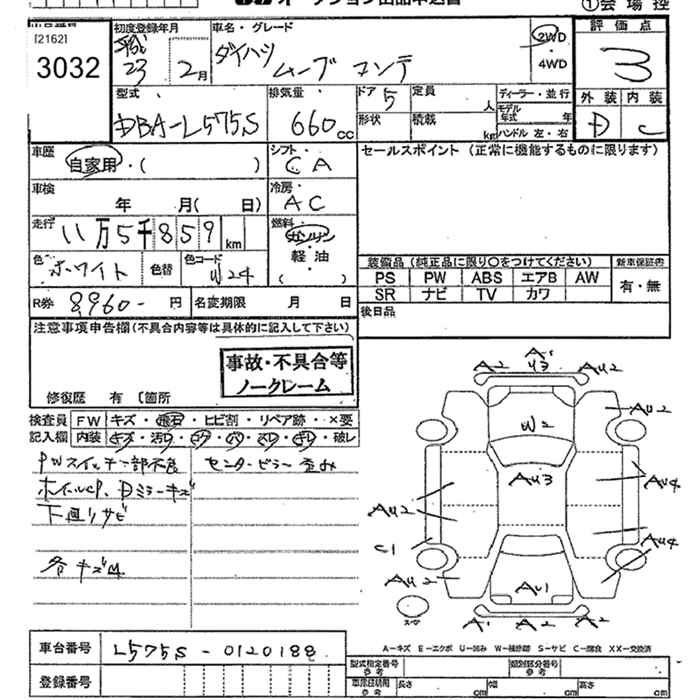 オークション出品申込書
①会場控
[2162]
3032
初度登録年月
平成
23 2月
車名・グレード
ダイハツ
ムーブ コンテ
2WD
・
4WD
評価点
3
外装 内装
D C
型式
DBA-L575S
排気量
660cc
ドア 5
形状
定員 人
積載 kg
ディーラー・並行
モデル年式 年
ハンドル 左・右
車歴
自家用・( )
シフト・
CA
セールスポイント (正常に機能するものに限ります)
車検
年 月( 日)
冷房・
AC
走行
11万5千859km
燃料・
ガソリン
軽油
・( )
色 ホワイト
色替
色コード
W24
装備品 (純正品に限り○をつけてください)
新車保証書
PS PW ABS エアB AW
SR ナビ TV カワ
有・無
R券 8960- 円
名変期限 月 日
後日品
注意事項申告欄 (不具合内容等は具体的に記入して下さい)
事故・不具合等
ノークレーム
修復歴 有 〔箇所
検査員 FW キズ・飛石・ヒビ割・リペア跡・×要
記入欄 内装 キズ・汚レ・コゲ・穴・スレ・ヨレ・破レ
PWスイッチ一部不良
センターピラー歪み
ホイールCP、Dミラーキズ
下廻りサビ
各キズ凹
A2 A1 U3 AU2
AU2
W2
AU3
AU2
AU4
C1
AU4
AU2
AU1
A1 A2 A2
スペア
A－キズ E－エクボ U－凹み W－補修跡 S－サビ C－腐食 XX－交換済
車台番号 L575S-0120188
登録番号
型式指定番号
参考
類別区分番号
参考
車庫証明用
参考
長さ cm
幅 cm
高さ cm